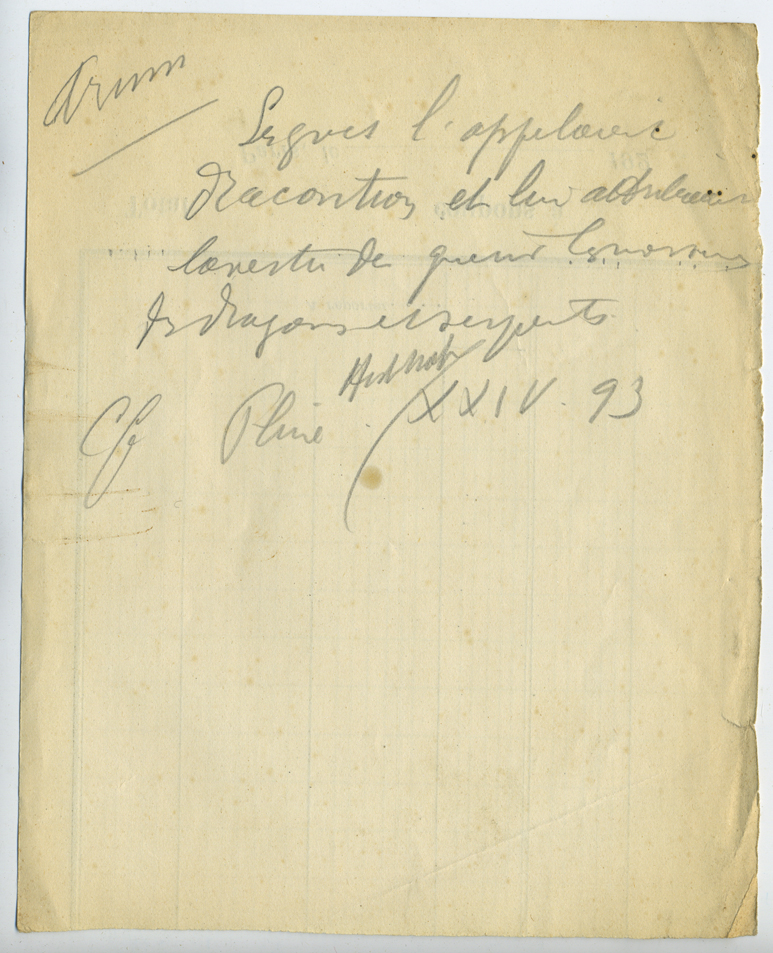 Arum
Les grecs l'appelaient
Dracontion et lui attribuaient
la vertu de guérir les morsures
des dragons et serpents
Hist Nat
Cf Pline. XXIV. 93